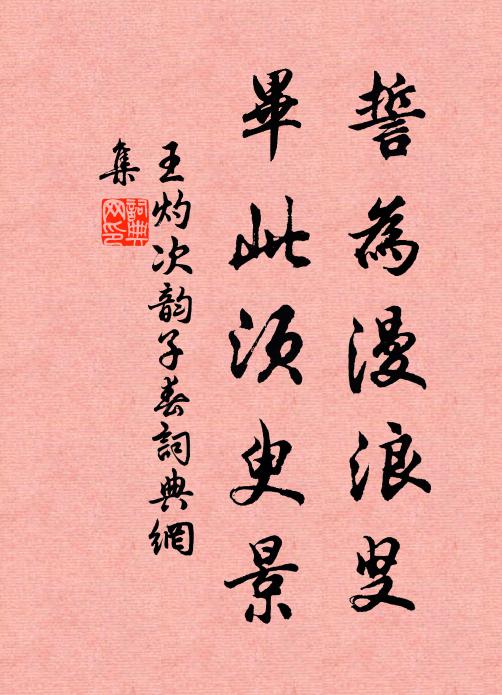 誓為漫浪叟
畢此須臾景
王灼次韵子春詞典網
集
詞典网印